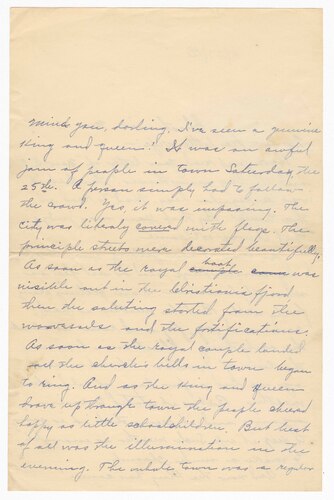 Mind you, darling, I've seen a genuine
King and queen! It was an awful
jam of people in town Saturday the
25th. A person simply had to follow
the crowd. Yes, it was imposing. The
city was literaly covered with flags. The
principle streets were decorated beautifully.
As soon as the royal boat was
visible out in the Christiania fjord
then the saluting started from the
warvessels and the fortifications.
As soon as the royal couple landed
all the churche's bells in town began
to ring. And as the King and Queen
drove up through town the people cheered
happy as little schoolchildren. But best
of all was the illumination in the
evenning. The whole town was a regular